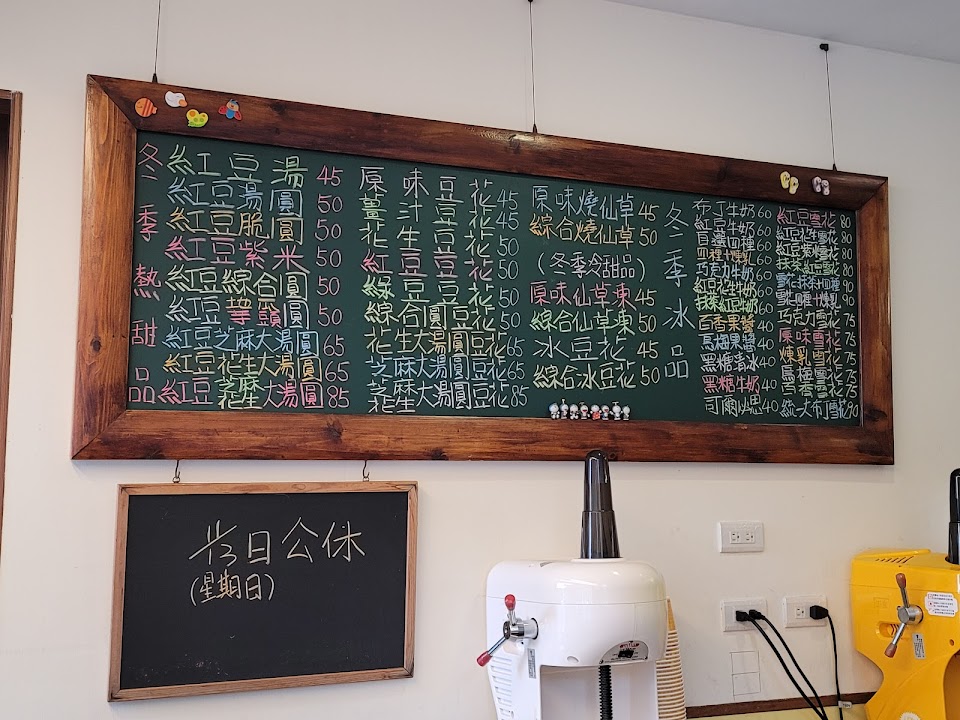 冬季熱甜品
紅豆湯 45
紅豆湯圓 50
紅豆脆圓 50
紅豆紫米 50
紅豆綜合圓 50
紅豆 50
紅豆芝麻大湯圓 65
紅豆花生大湯圓 65
紅豆芝麻花生大湯圓 85
原味豆花 45
薑汁豆花 45
花生豆花 50
紅豆豆花 50
綠豆豆花 50
綜合圓豆花 50
花生大湯圓豆花 65
芝麻大湯圓豆花 65
芝麻花生大湯圓豆花 85
原味燒仙草 45
綜合燒仙草 50
(冬季冷甜品)
原味仙草凍 45
綜合仙草凍 50
冰豆花 45
綜合冰豆花 50
冬季冰品
布丁牛奶 60
紅豆牛奶 60
自選四種 60
四種+煉乳 60
巧克力牛奶 60
紅豆花生牛奶 60
抹茶紅豆牛奶 60
百香果醬 40
烏梅果醬 40
黑糖清冰 40
黑糖牛奶 40
可爾必思 40
紅豆雪花 80
紅豆花生雪花 80
紅豆紫米雪花 80
抹茶紅豆雪花 80
雪花抹茶+四種 90
雪花+四種+煉乳 90
巧克力雪花 75
原味雪花 75
煉乳雪花 75
烏梅雪花 75
百香雪花 75
統一大布丁雪花 90
1/3日公休
(星期日)